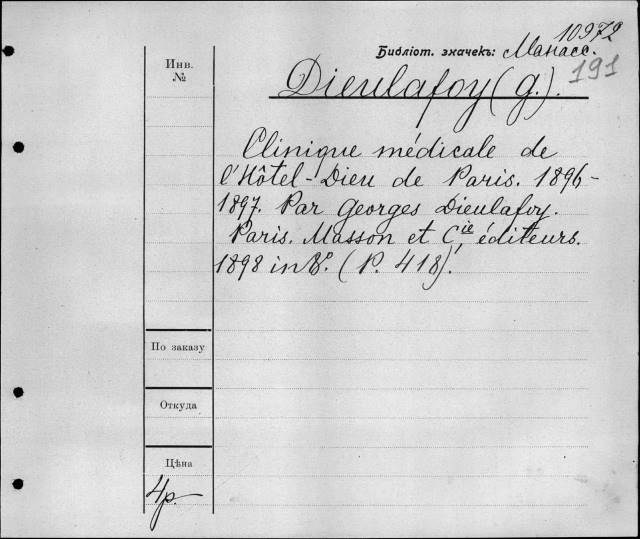 10972
Библіот. значекъ: Манасс.
191
Инв.
№
Dieulafoy (G.).
Clinique médicale de
l'Hôtel-Dieu de Paris. 1896-
1897. Par Georges Dieulafoy.
Paris. Masson et Cie, éditeurs.
1898 in 8º. (P. 418).
По заказу
Откуда
Цѣна
4р.